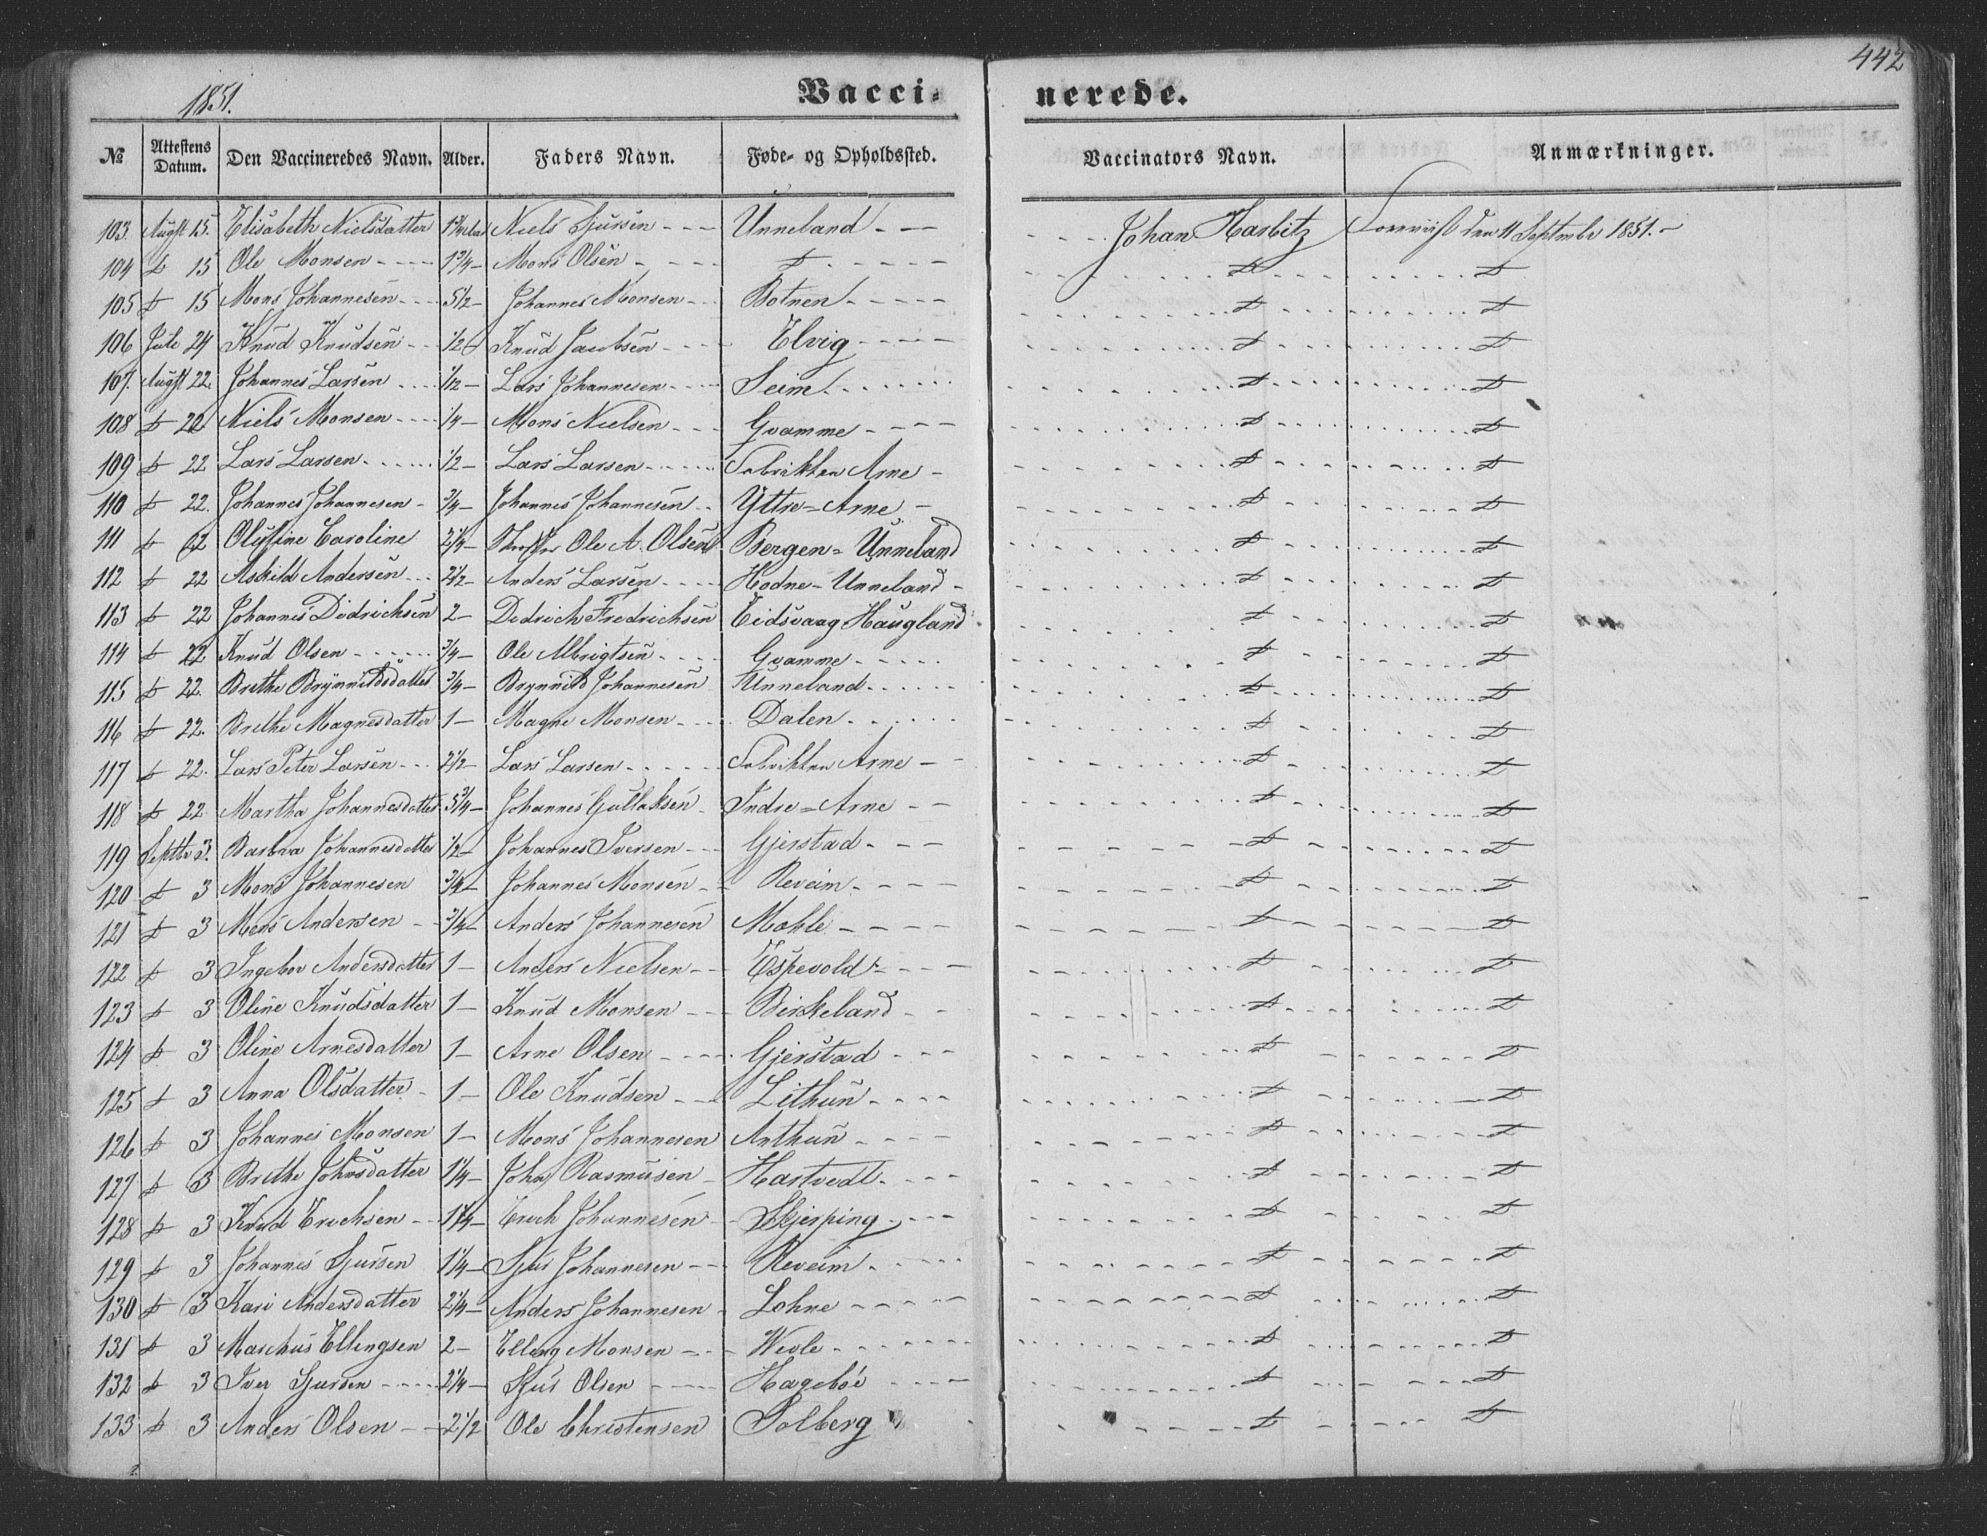 442
1851.
Vacci- nerede.
№ Attestens Datum. Den Vaccineredes Navn. Alder. Faders Navn. Føde- og Opholdssted. Vaccinators Navn. Anmærkninger.
103. Augst 15. Elisabeth Nielsdatter Niels Sjursen Unneland Johan Harbitz Foreviist den 11 September 1851.
104 d 15 Ole Monsen 1 3/4 Mons Olsen d d d
105 d 15 Mons Johannesen 5 1/2 Johannes Monsen Botnen d d
106 Juli 24 Knud Knudsen 1/2 Knud Jacobsen Elvig d d
107. Augst 22. Johannes Larsen 1/12 Lars Johannesen Seim d d
108 d 22 Niels Monsen 1/4 Mons Nielsen Gvamme d d
109 d 22 Lars Larsen 1/2 Lars Larsen Fabrikken Arne d d
110 d 22. Johannes Johannesen 3/4 Johannes Johannesen Yttre-Arne d d
111 d 22 Olufine Caroline 2 1/4 Ole A. Olsen Bergen-Unneland d d
112 d 22 Askild Andersen 2 1/2 Anders Larsen Hodne-Unneland d d
113 d 22 Johannes Didrichsen 2 Didrich Fredrichsen Eidsvaag Haugland d d
114 d 22 Knud Olsen 3/4 Ole Albrigtsen Gvamme d d
115 d 22. Brithe Brynnildsdatter 3/4 Brynnild Johannesen Unneland d d
116 d 22. Brithe Magnesdatter 1 Magne Monsen Dalen d d
117 d 22. Lars Peter Larsen 2 1/2 Lars Larsen Fabrikken Arne d d
118 d 22 Martha Johannesdatter 5 3/4 Johannes Gullaksen Indre-Arne d d
119 Septbr 3. Barbra Johannesdatter 1/2 Johannes Iversen Gjerstad d d
120 d 3 Mons Johannesen 3/4 Johannes Monsen Reveim d d
121 d 3 Mons Andersen 3/4 Anders Johannesen Mohle d d
122 d 3 Ingebor Andersdatter 1 Anders Nielsen Espevold d d
123 d 3 Oline Knudsdatter 1 Knud Monsen Birkeland d d
124 d 3 Oline Arnesdatter 1 Arne Olsen Gjerstad d d
125 d 3 Anna Olsdatter 1 Ole Knudsen Lithun d d
126 d 3 Johannes Monsen 1 Mons Johannesen Arthun d d
127 d 3 Brithe Johnsdatter 1 1/4 John Rasmusen Hartvedt d d
128 d 3 Knud Erichsen 1 1/4 Erich Johannesen Skjerping d d
129 d 3 Johannes Sjursen 1 1/4 Sjur Johannesen Reveim d d
130 d 3 Kari Andersdatter 2 1/4 Anders Johannesen Lohne d d
131 d 3 Marchus Ellingsen 2 Elling Monsen Wevle d d
132 d 3 Iver Sjursen 2 1/4 Sjur Olsen Hagebøe d d
133 d 3 Anders Olsen 2 1/2 Ole Christensen Solberg d d